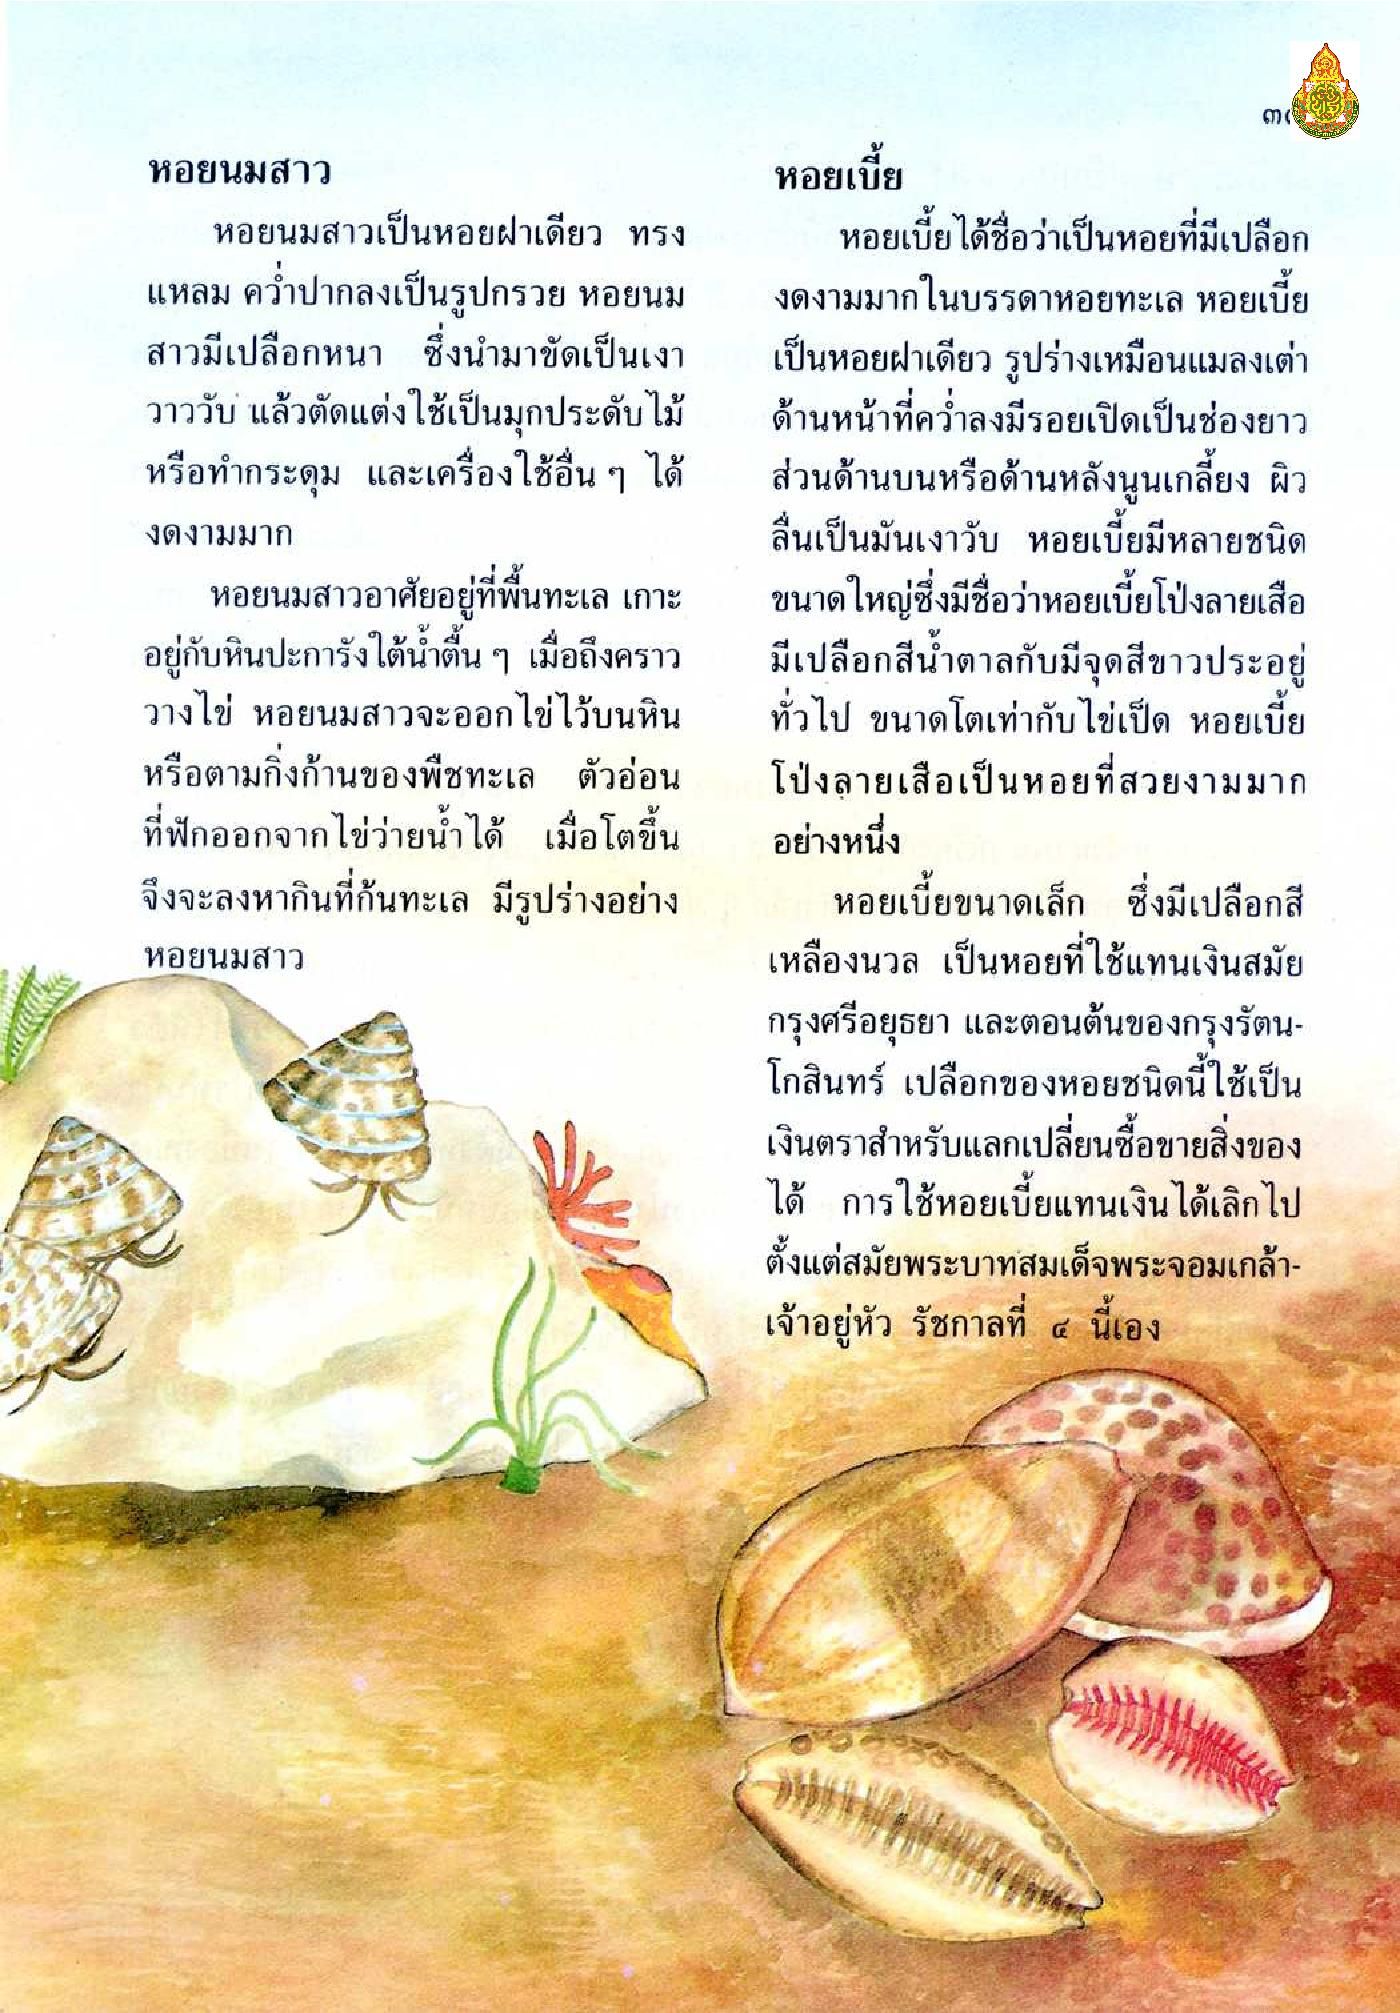 หอยนมสาว
หอยนมสาวเป็นหอยฝาเดียว ทรง
แหลม คว่ำปากลงเป็นรูปกรวย หอยนม
สาวมีเปลือกหนา ซึ่งนำมาขัดเป็นเงา
วาววับ แล้วตัดแต่งใช้เป็นมุกประดับไม้
หรือทำกระดุม และเครื่องใช้อื่น ๆ ได้
งดงามมาก
หอยนมสาวอาศัยอยู่ที่พื้นทะเล เกาะ
อยู่กับหินปะการังใต้น้ำตื้น ๆ เมื่อถึงคราว
วางไข่ หอยนมสาวจะออกไข่ไว้บนหิน
หรือตามกิ่งก้านของพืชทะเล ตัวอ่อน
ที่ฟักออกจากไข่ว่ายน้ำได้ เมื่อโตขึ้น
จึงจะลงหากินที่ก้นทะเล มีรูปร่างอย่าง
หอยนมสาว
หอยเบี้ย
หอยเบี้ยได้ชื่อว่าเป็นหอยที่มีเปลือก
งดงามมากในบรรดาหอยทะเล หอยเบี้ย
เป็นหอยฝาเดียว รูปร่างเหมือนแมลงเต่า
ด้านหน้าที่คว่ำลงมีรอยเปิดเป็นช่องยาว
ส่วนด้านบนหรือด้านหลังนูนเกลี้ยง ผิว
ลื่นเป็นมันเงาวับ หอยเบี้ยมีหลายชนิด
ขนาดใหญ่ซึ่งมีชื่อว่าหอยเบี้ยโป่งลายเสือ
มีเปลือกสีน้ำตาลกับมีจุดสีขาวประอยู่
ทั่วไป ขนาดโตเท่ากับไข่เป็ด หอยเบี้ย
โป่งลายเสือเป็นหอยที่สวยงามมาก
อย่างหนึ่ง
หอยเบี้ยขนาดเล็ก ซึ่งมีเปลือกสี
เหลืองนวล เป็นหอยที่ใช้แทนเงินสมัย
กรุงศรีอยุธยา และตอนต้นของกรุงรัตน-
โกสินทร์ เปลือกของหอยชนิดนี้ใช้เป็น
เงินตราสำหรับแลกเปลี่ยนซื้อขายสิ่งของ
ได้ การใช้หอยเบี้ยแทนเงินได้เลิกไป
ตั้งแต่สมัยพระบาทสมเด็จพระจอมเกล้า-
เจ้าอยู่หัว รัชกาลที่ ๔ นี้เอง